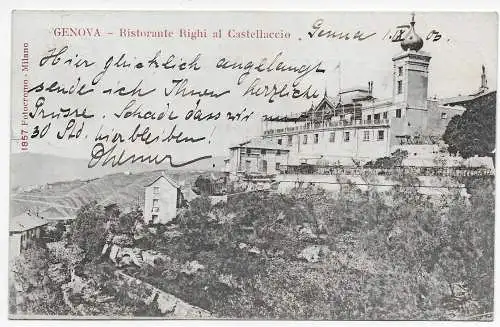 GENOVA – Ristorante Righi al Castellaccio
Genua 1. IX. 03.
Hier glücklich angelangt
sende ich Ihnen herzlich
Grüsse. Schade dass wir nur
30 Std. hierbleiben!
1857 Fotocromo - Milano